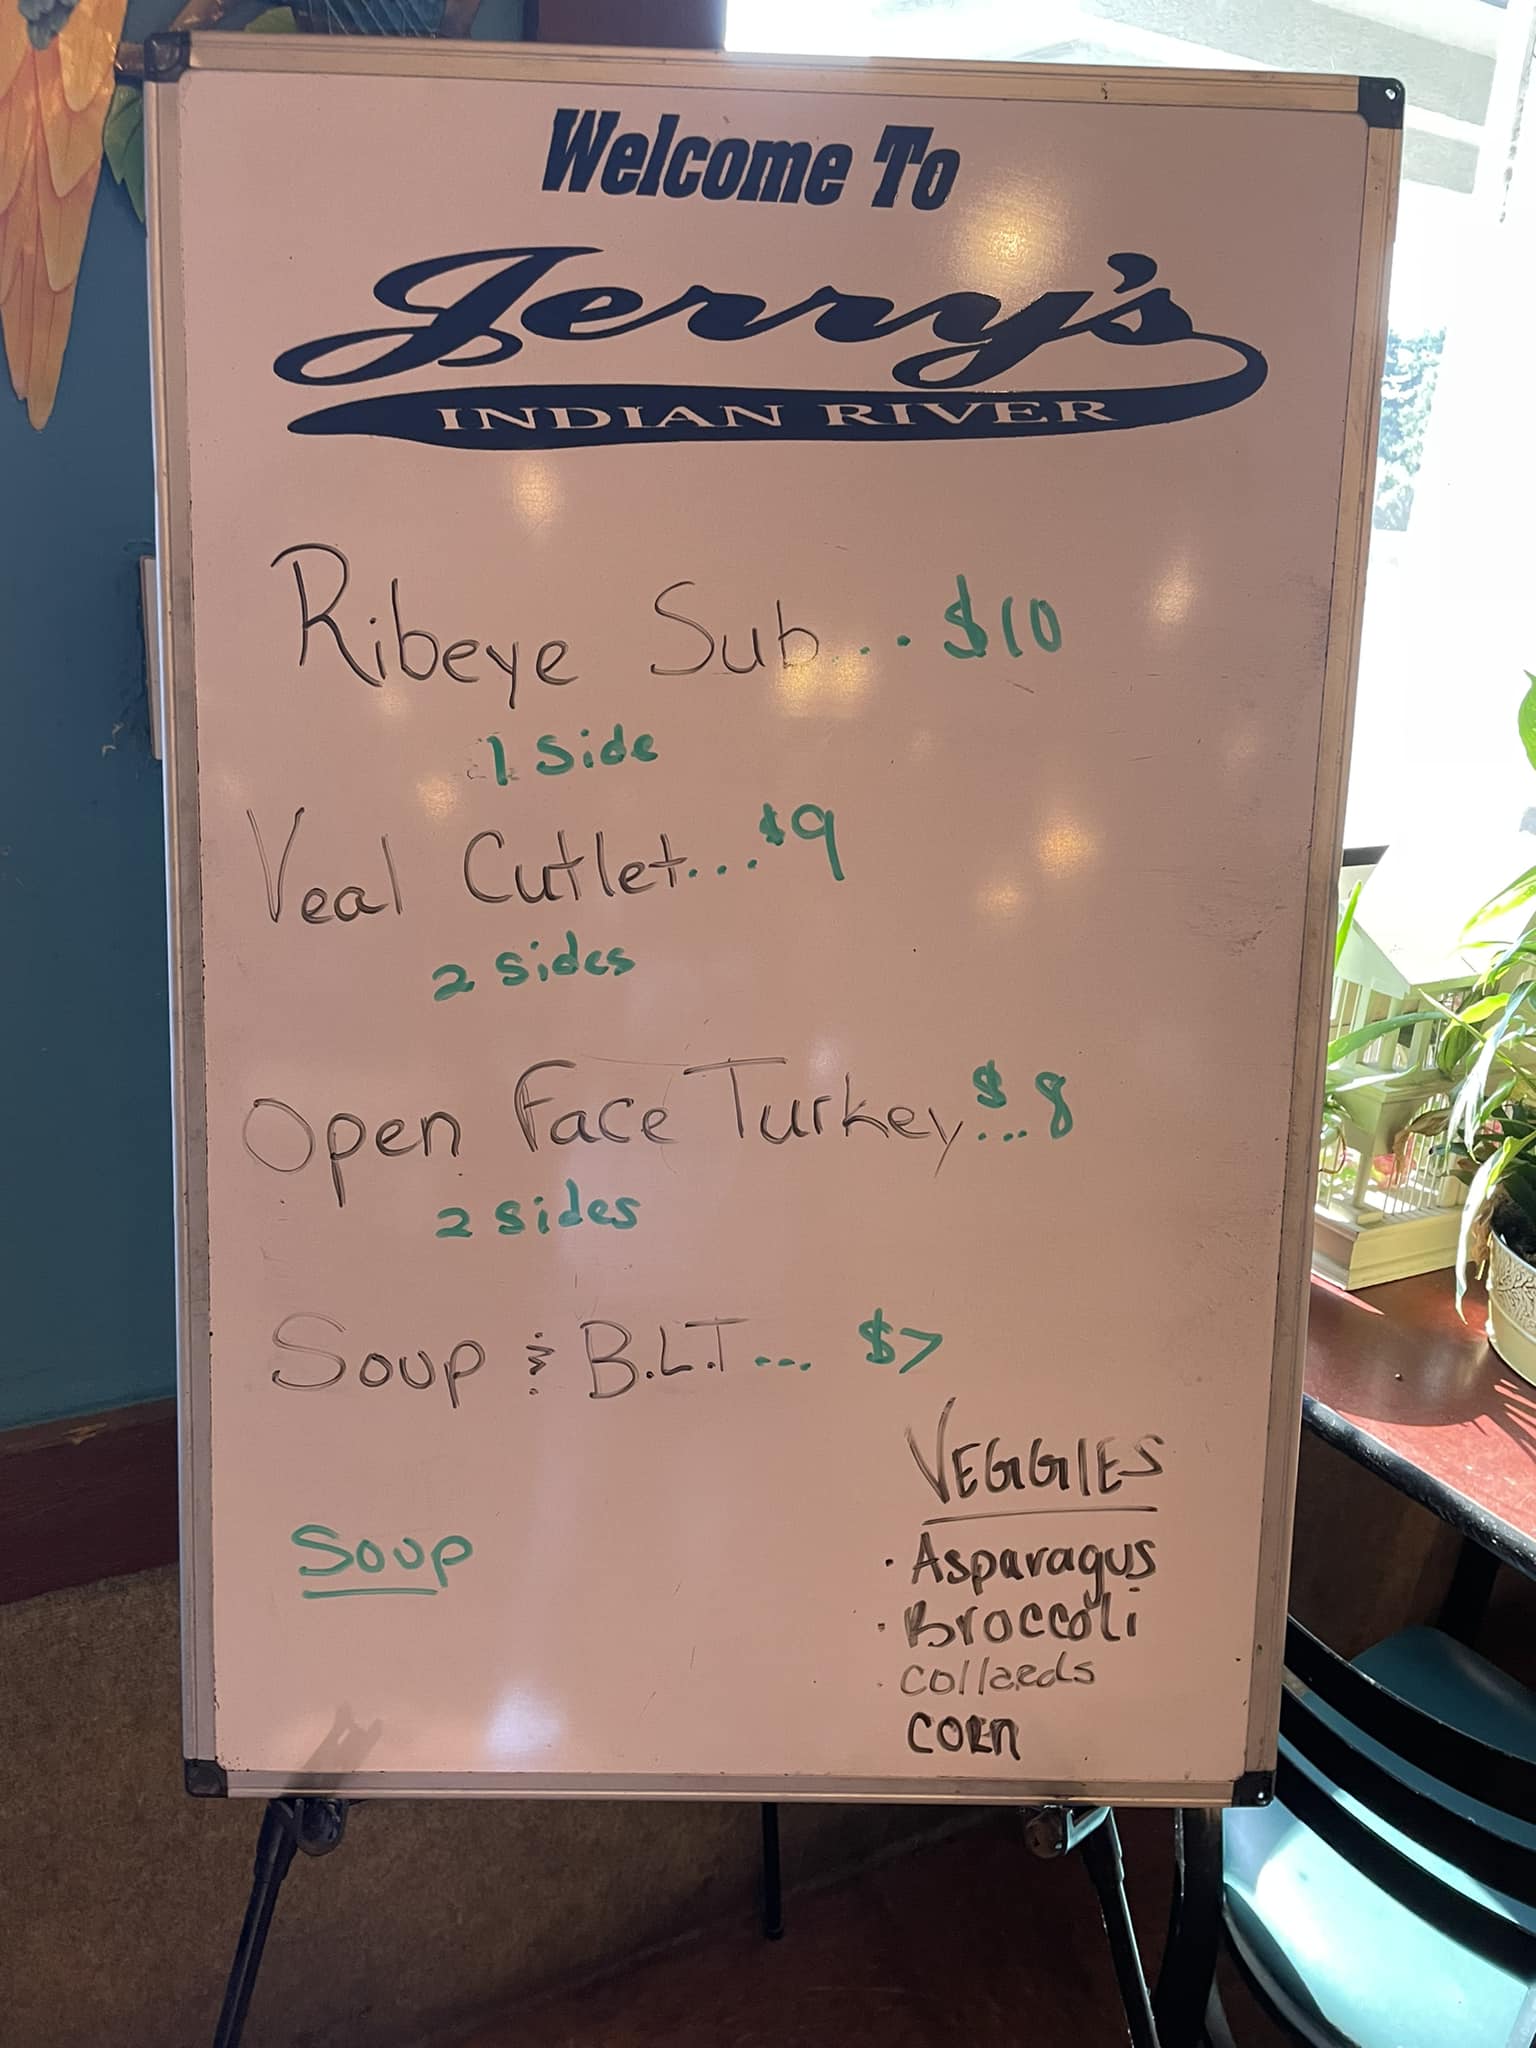 Welcome To
Jerry's
INDIAN RIVER
Ribeye Sub... $10
1 side
Veal Cutlet...$9
2 sides
Open Face Turkey...$8
2 sides
Soup & B.L.T... $7
VEGGIES
Soup
· Asparagus
· Broccoli
· Collards
Corn